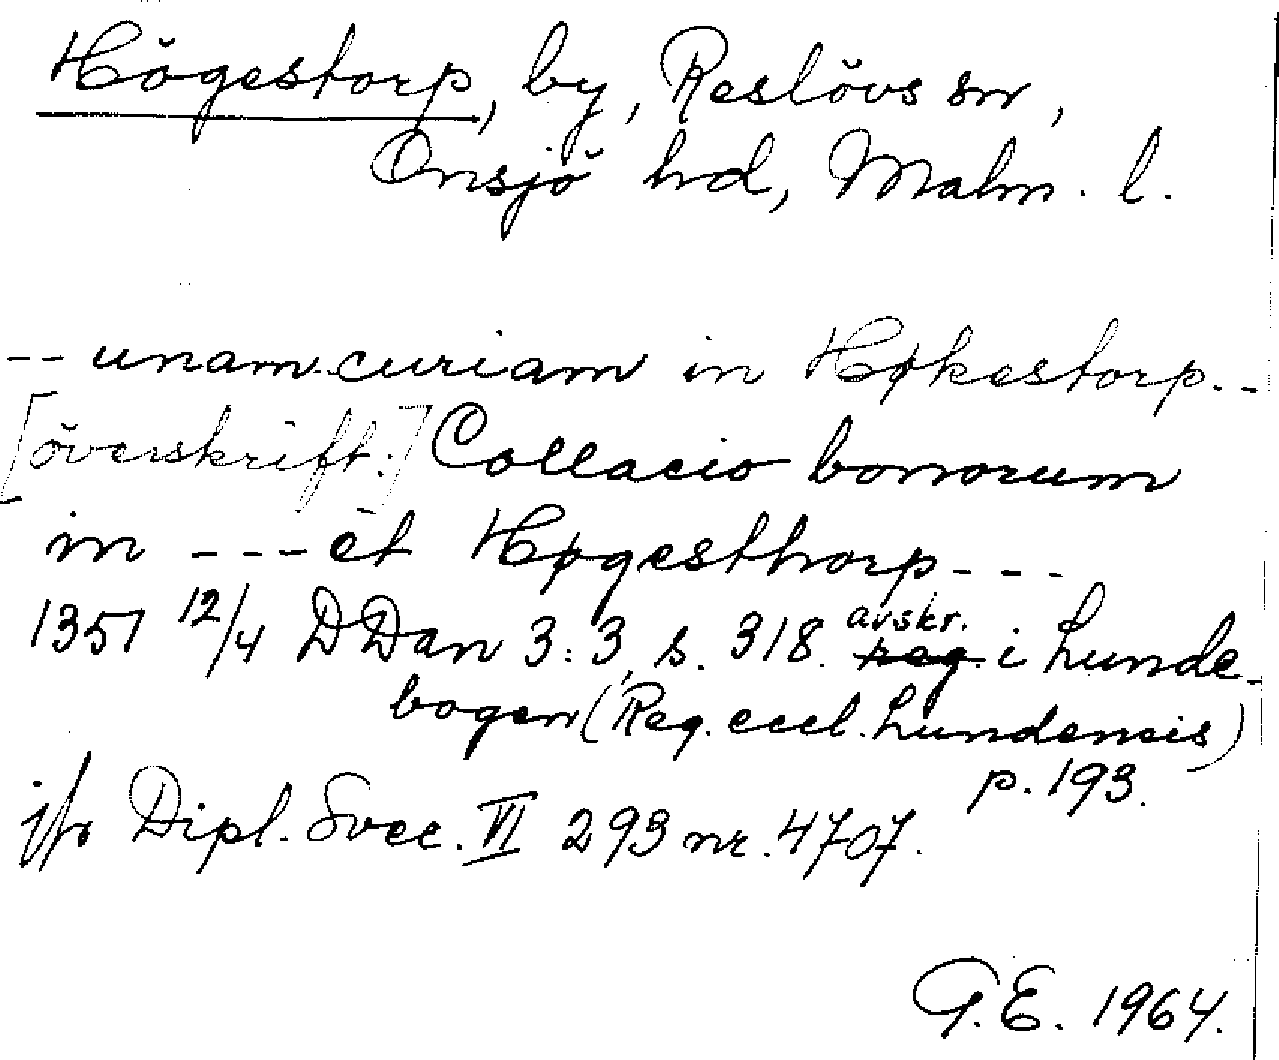 Högestorp, by, Reslövs sn,
Onsjö hd, Malm. l.
-- unam curiam in Høkestorp --
[överskrift:] Collacio bonorum
in --- et Høgesthorp ---
1351 12/4 DDan 3:3, s. 318. avskr. reg. i Lunde-
bogen (Reg. eccl. Lundensis)
p. 193.
jfr Dipl. Svec. VI 293 nr. 4707.
G.E. 1964.